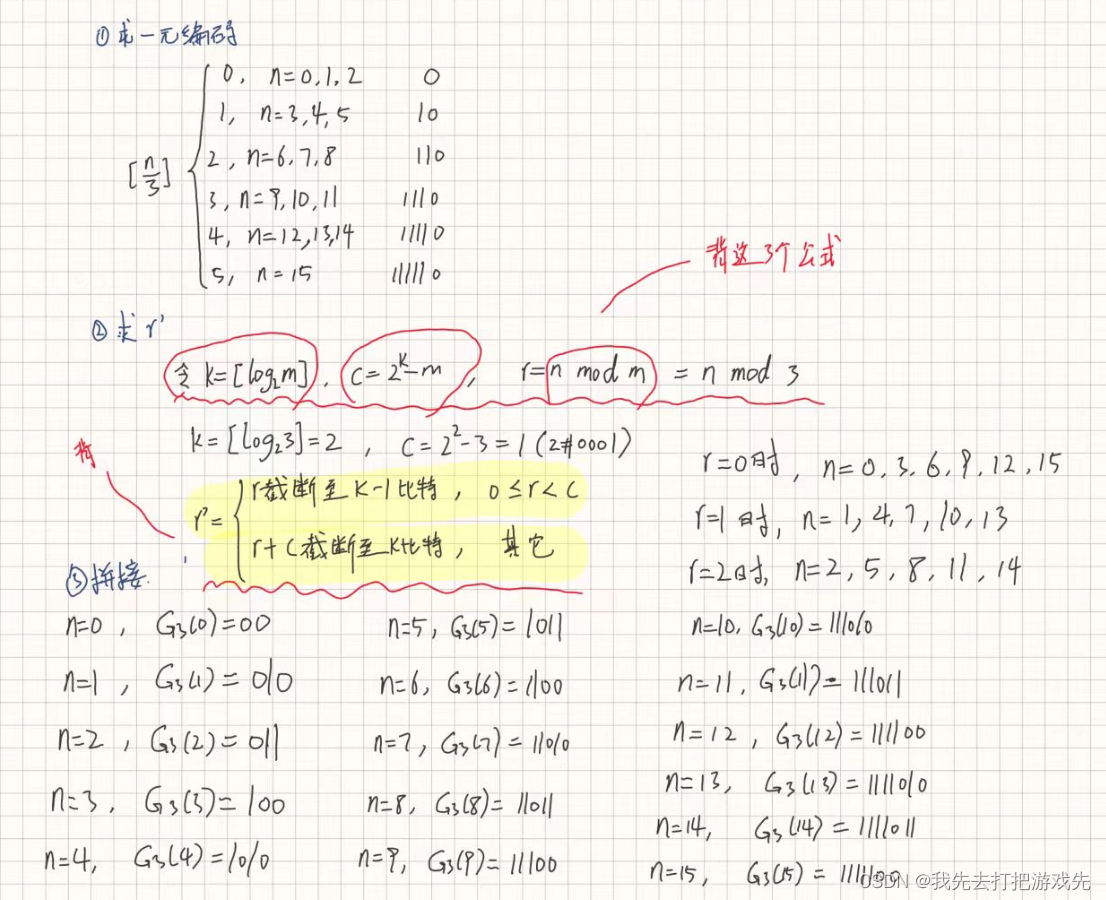 ①求一元编码
[n/3] { 0, n=0,1,2 0
1, n=3,4,5 10
2, n=6,7,8 110
3, n=9,10,11 1110
4, n=12,13,14 11110
5, n=15 111110
背这3个公式
②求r'
令 k=[log₂m], c=2^k-m, r=n mod m = n mod 3
k=[log₂3]=2, c=2²-3=1(2#0001)
背
r'= { r截断至k-1比特, 0≤r<c
r+c截断至k比特, 其它
r=0时, n=0.3.6.9.12.15
r=1时, n=1,4,7,10,13
r=2时, n=2,5,8,11,14
③拼接.
n=0, G₃(0)=00
n=1, G₃(1)=010
n=2, G₃(2)=011
n=3, G₃(3)=100
n=4, G₃(4)=1010
n=5, G₃(5)=1011
n=6, G₃(6)=1100
n=7, G₃(7)=11010
n=8, G₃(8)=11011
n=9, G₃(9)=11100
n=10, G₃(10)=111010
n=11, G₃(11)=111011
n=12, G₃(12)=111100
n=13, G₃(13)=1111010
n=14, G₃(14)=1111011
n=15, G₃(15)=1111100
CSDN @我先去打把游戏先